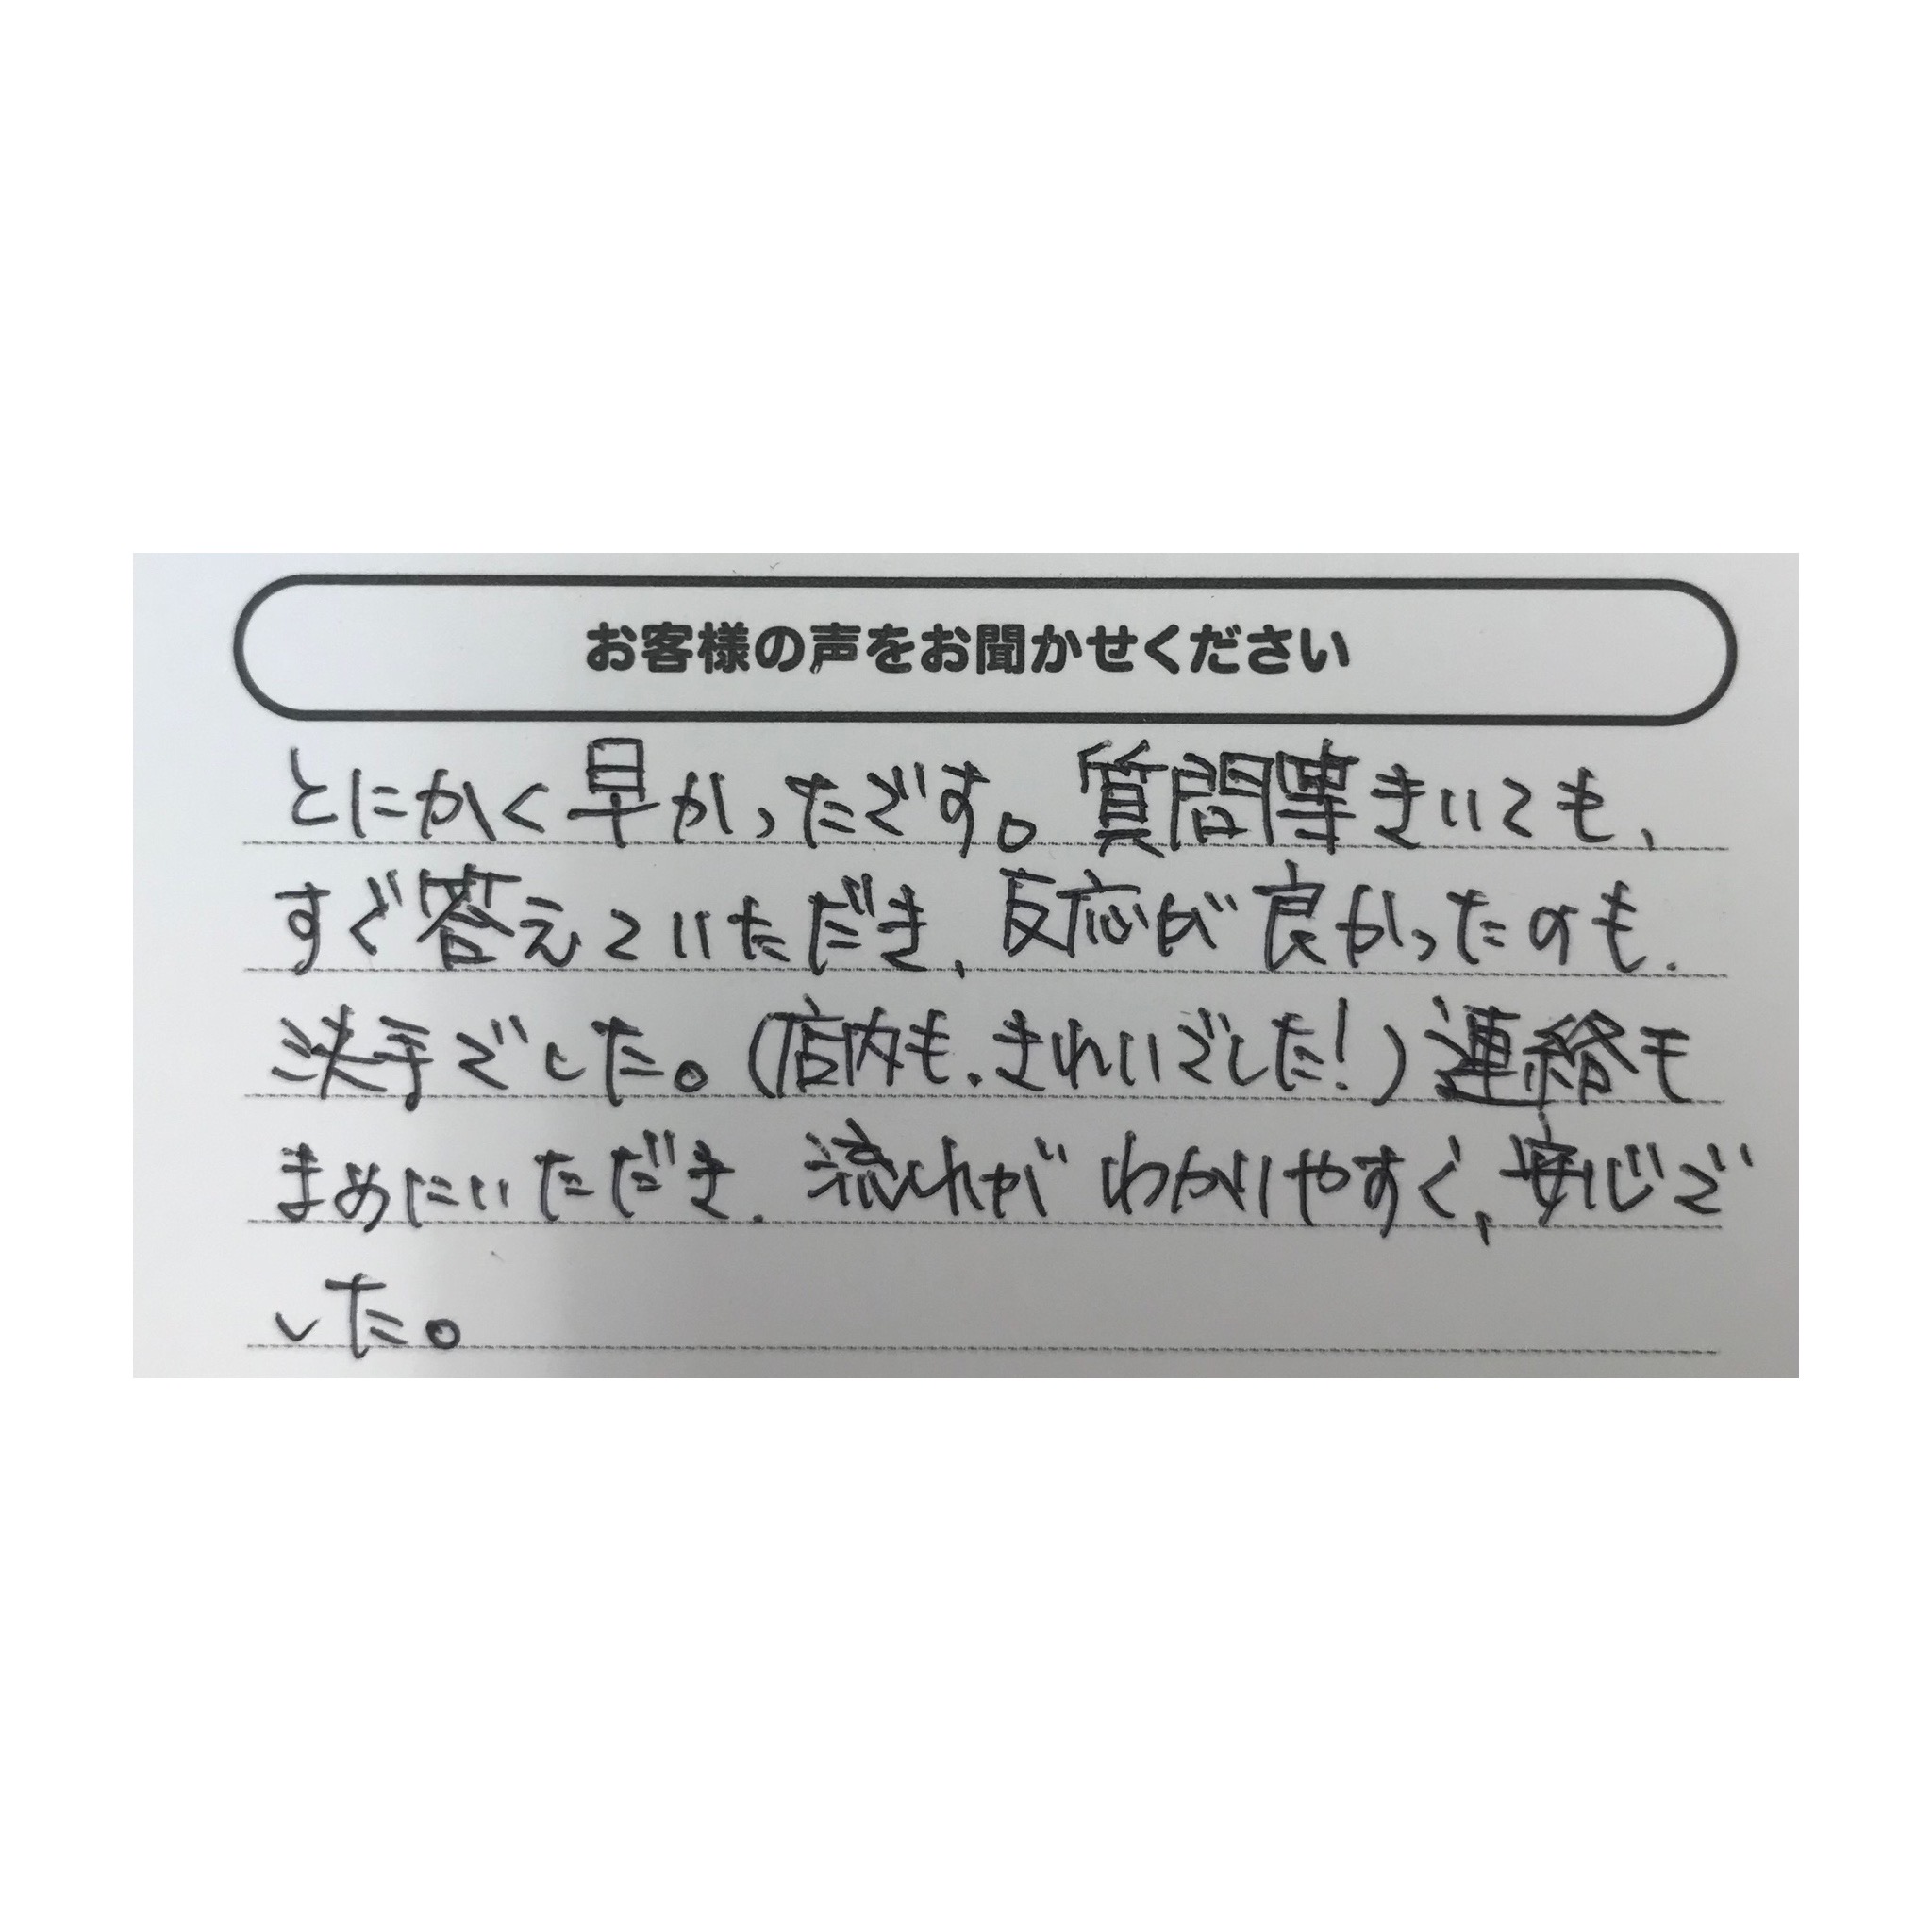 お客様の声をお聞かせください
とにかく早かったです。質問等きいても、
すぐ答えていただき、反応が良かったのも、
決手でした。(店内も、きれいでした!)連絡も
まめにいただき、流れがわかりやすく、安心で
した。